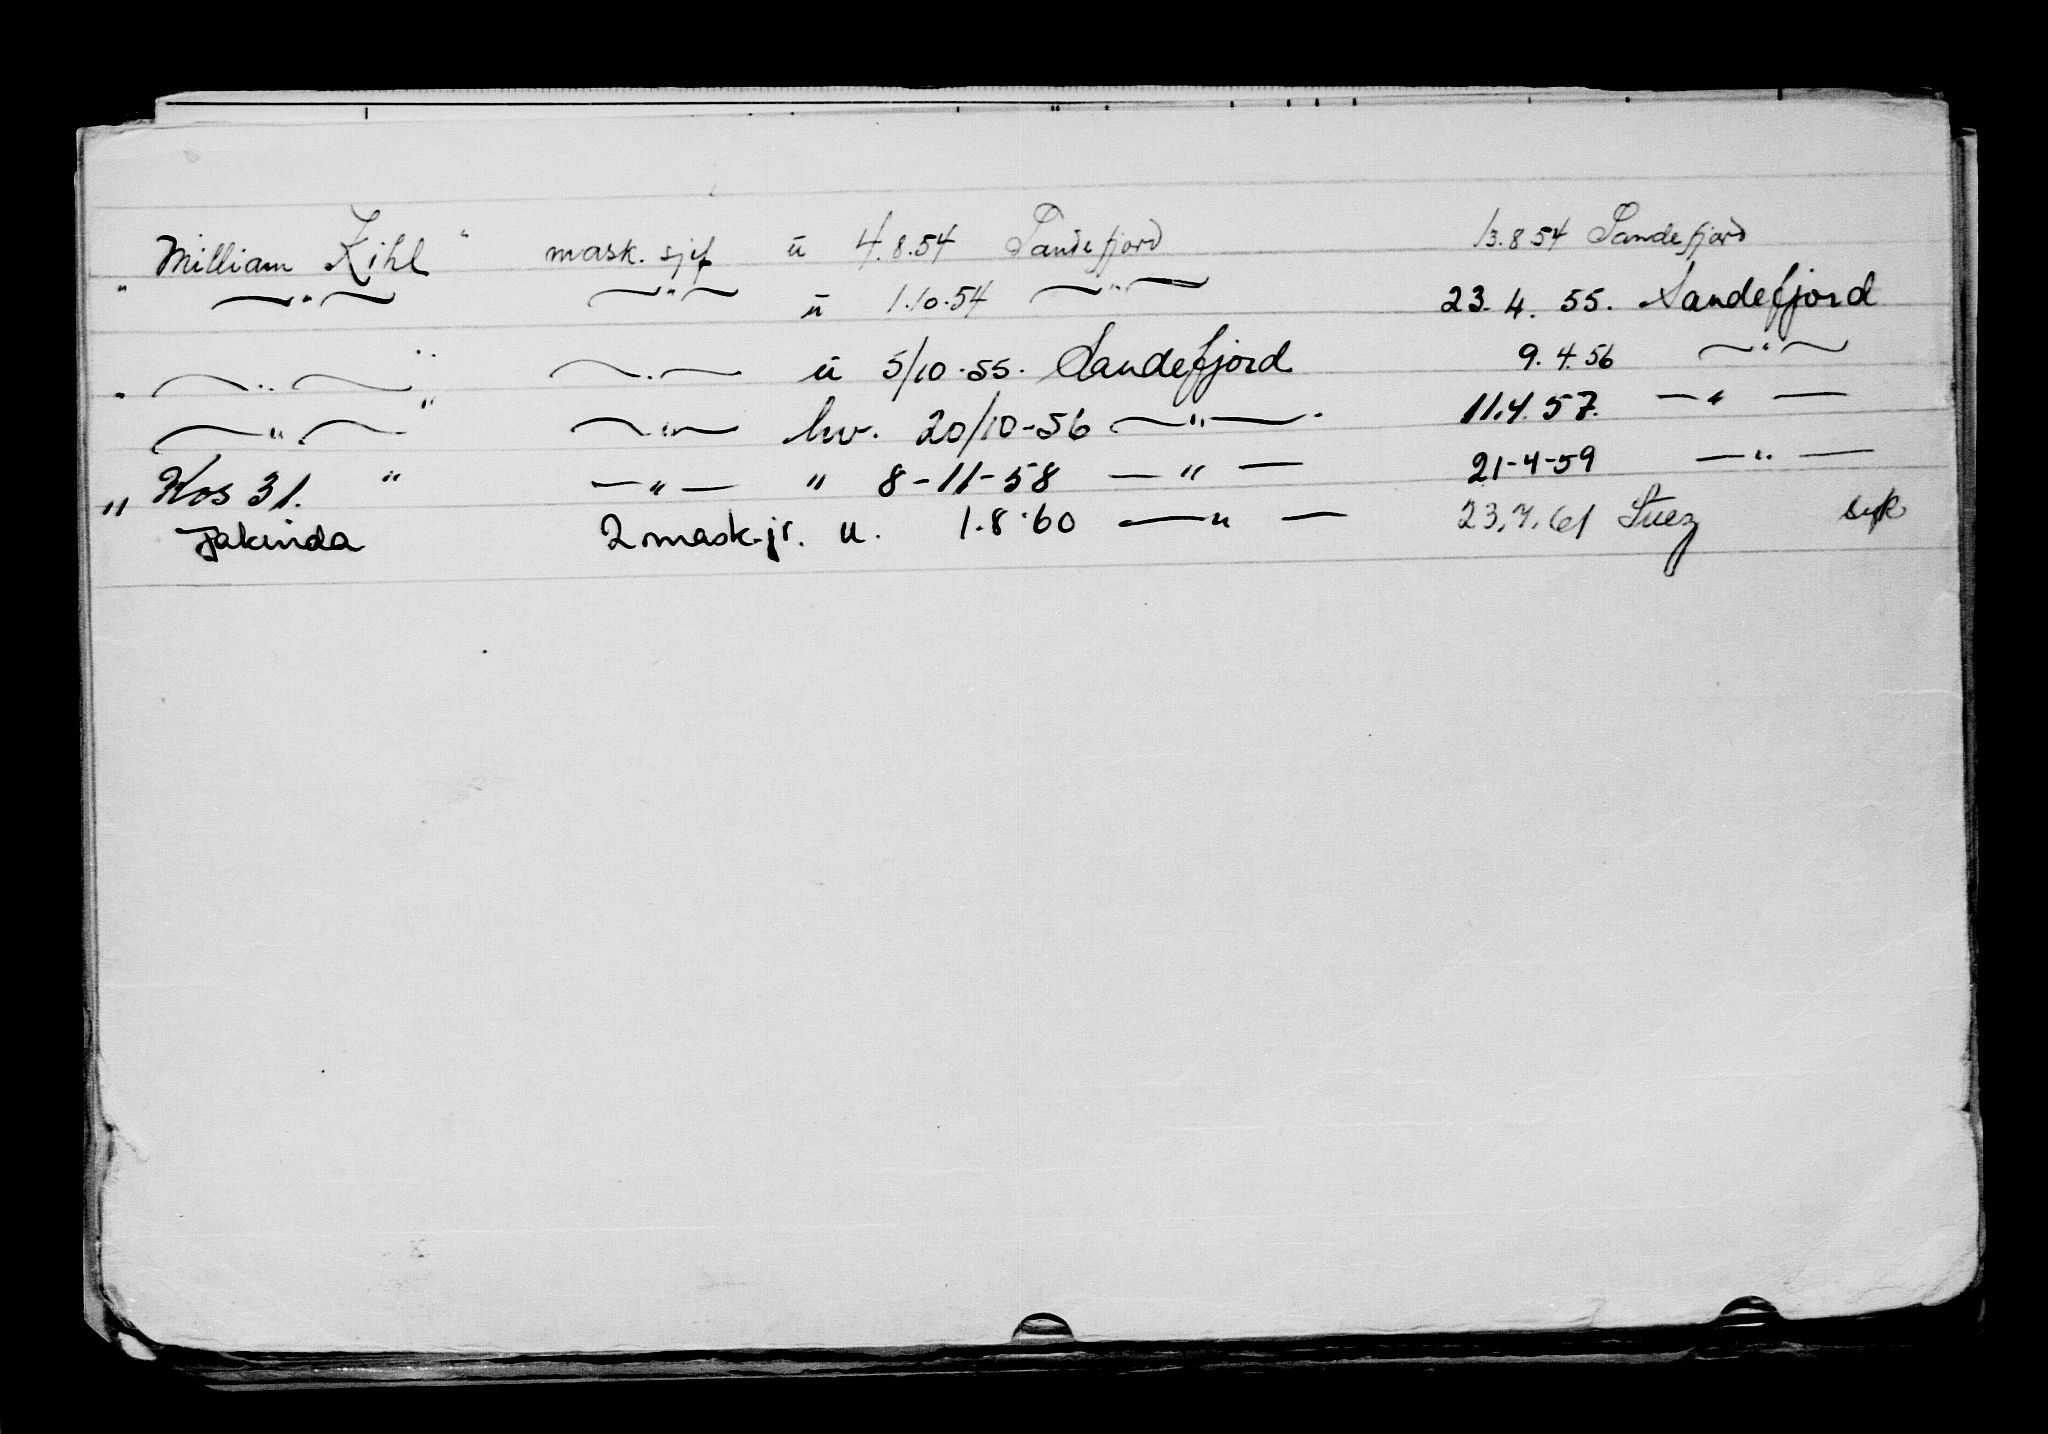 William Kihl " mask. sjef u 4.8.54 Sandefjord 13.8.54 Sandefjord
" — " — — " — u 1.10.54 — " — 23. 4. 55. Sandefjord
" — " — " — " — u 5/10.55. Sandefjord 9. 4. 56 — " —
— " — " — " — hv. 20/10-56 — " — 11.4.57. — " —
„ Kos 31. " — " — " 8-11-58 — " — 21-4-59 — " —
Jakinda 2 mask.jr. u. 1.8.60 — " — 23.7.61 Suez syk